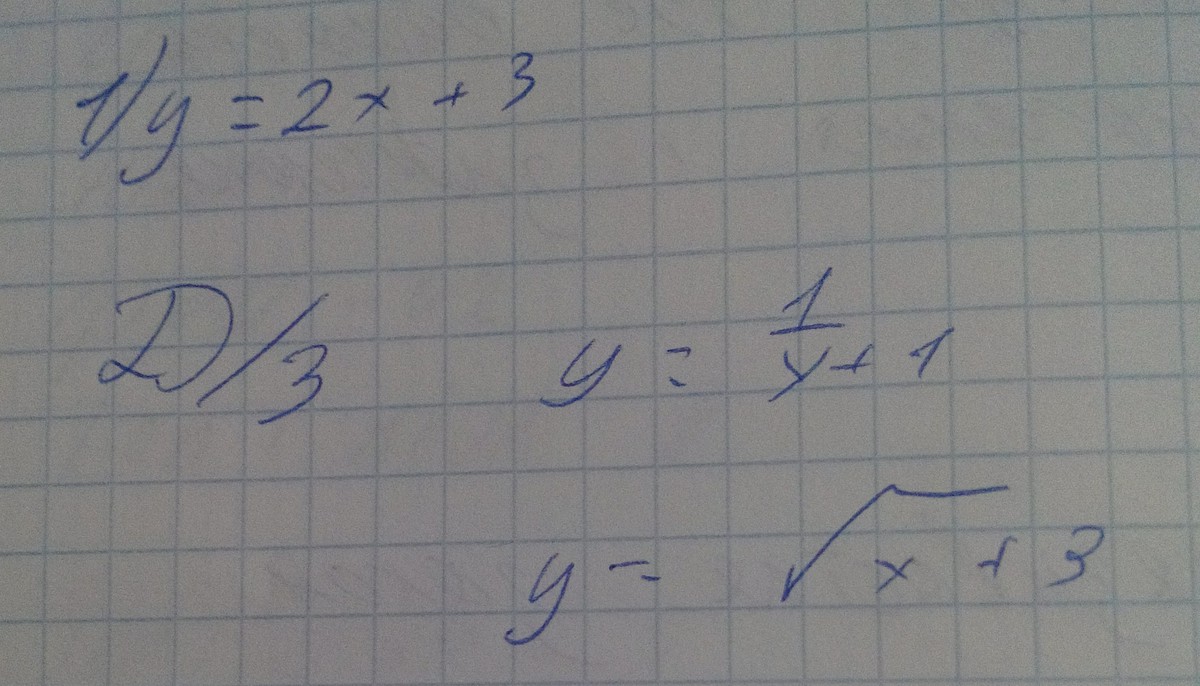 1/ y = 2x + 3
D/з y = 1/x + 1
y = √x + 3